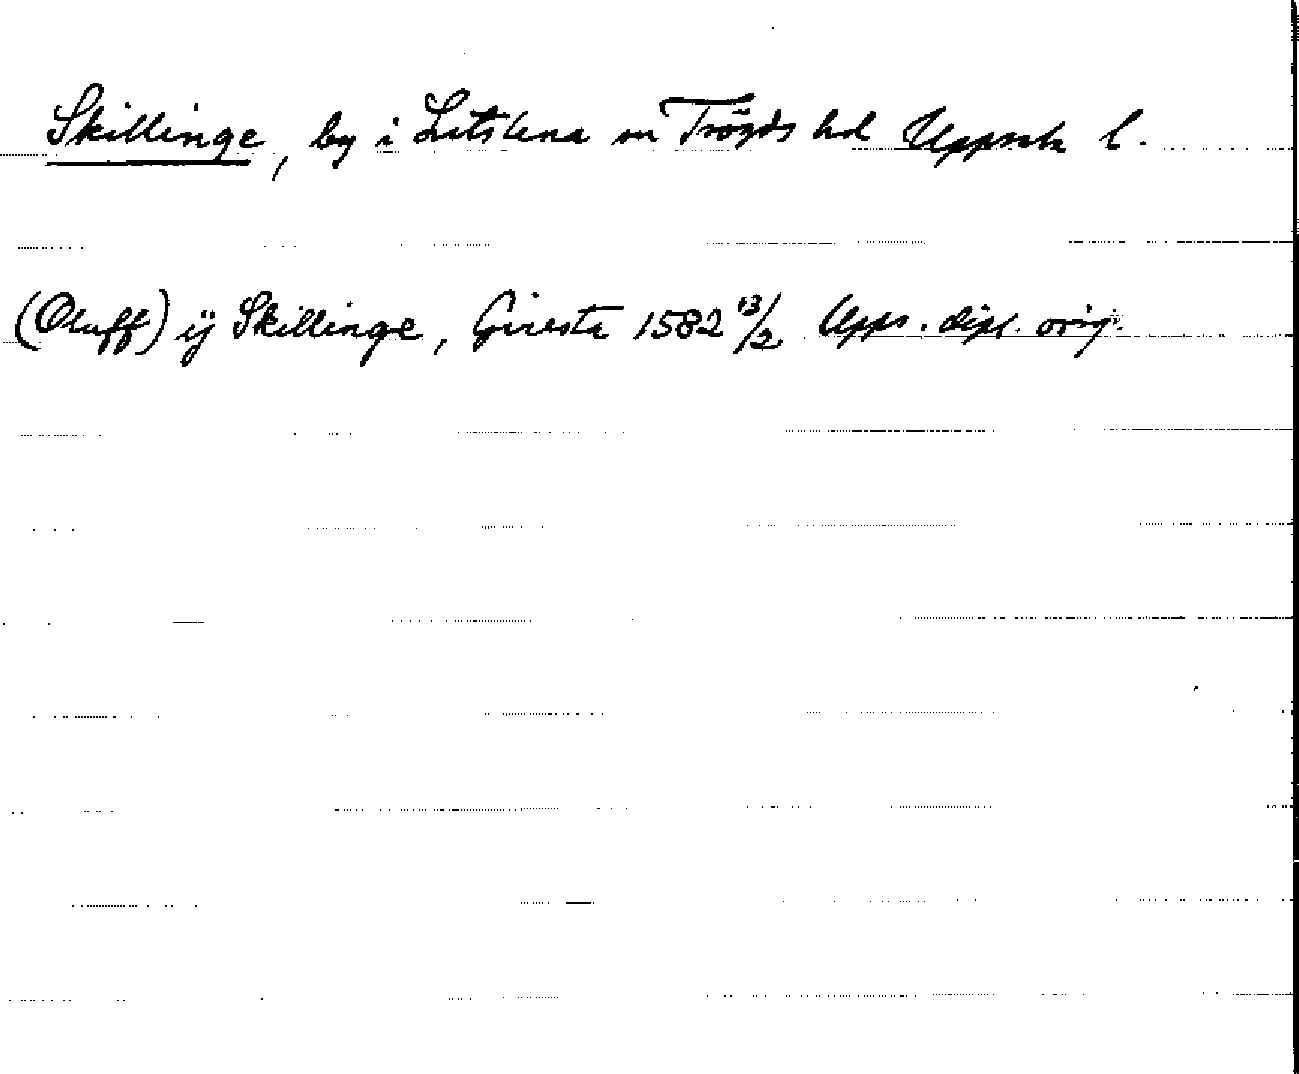 Skillinge, by i Litslena sn Trögds hd Uppsala l.
(Oluff) ij Skillinge, Giresta 1582 13/2 Upps. dipl. orig.